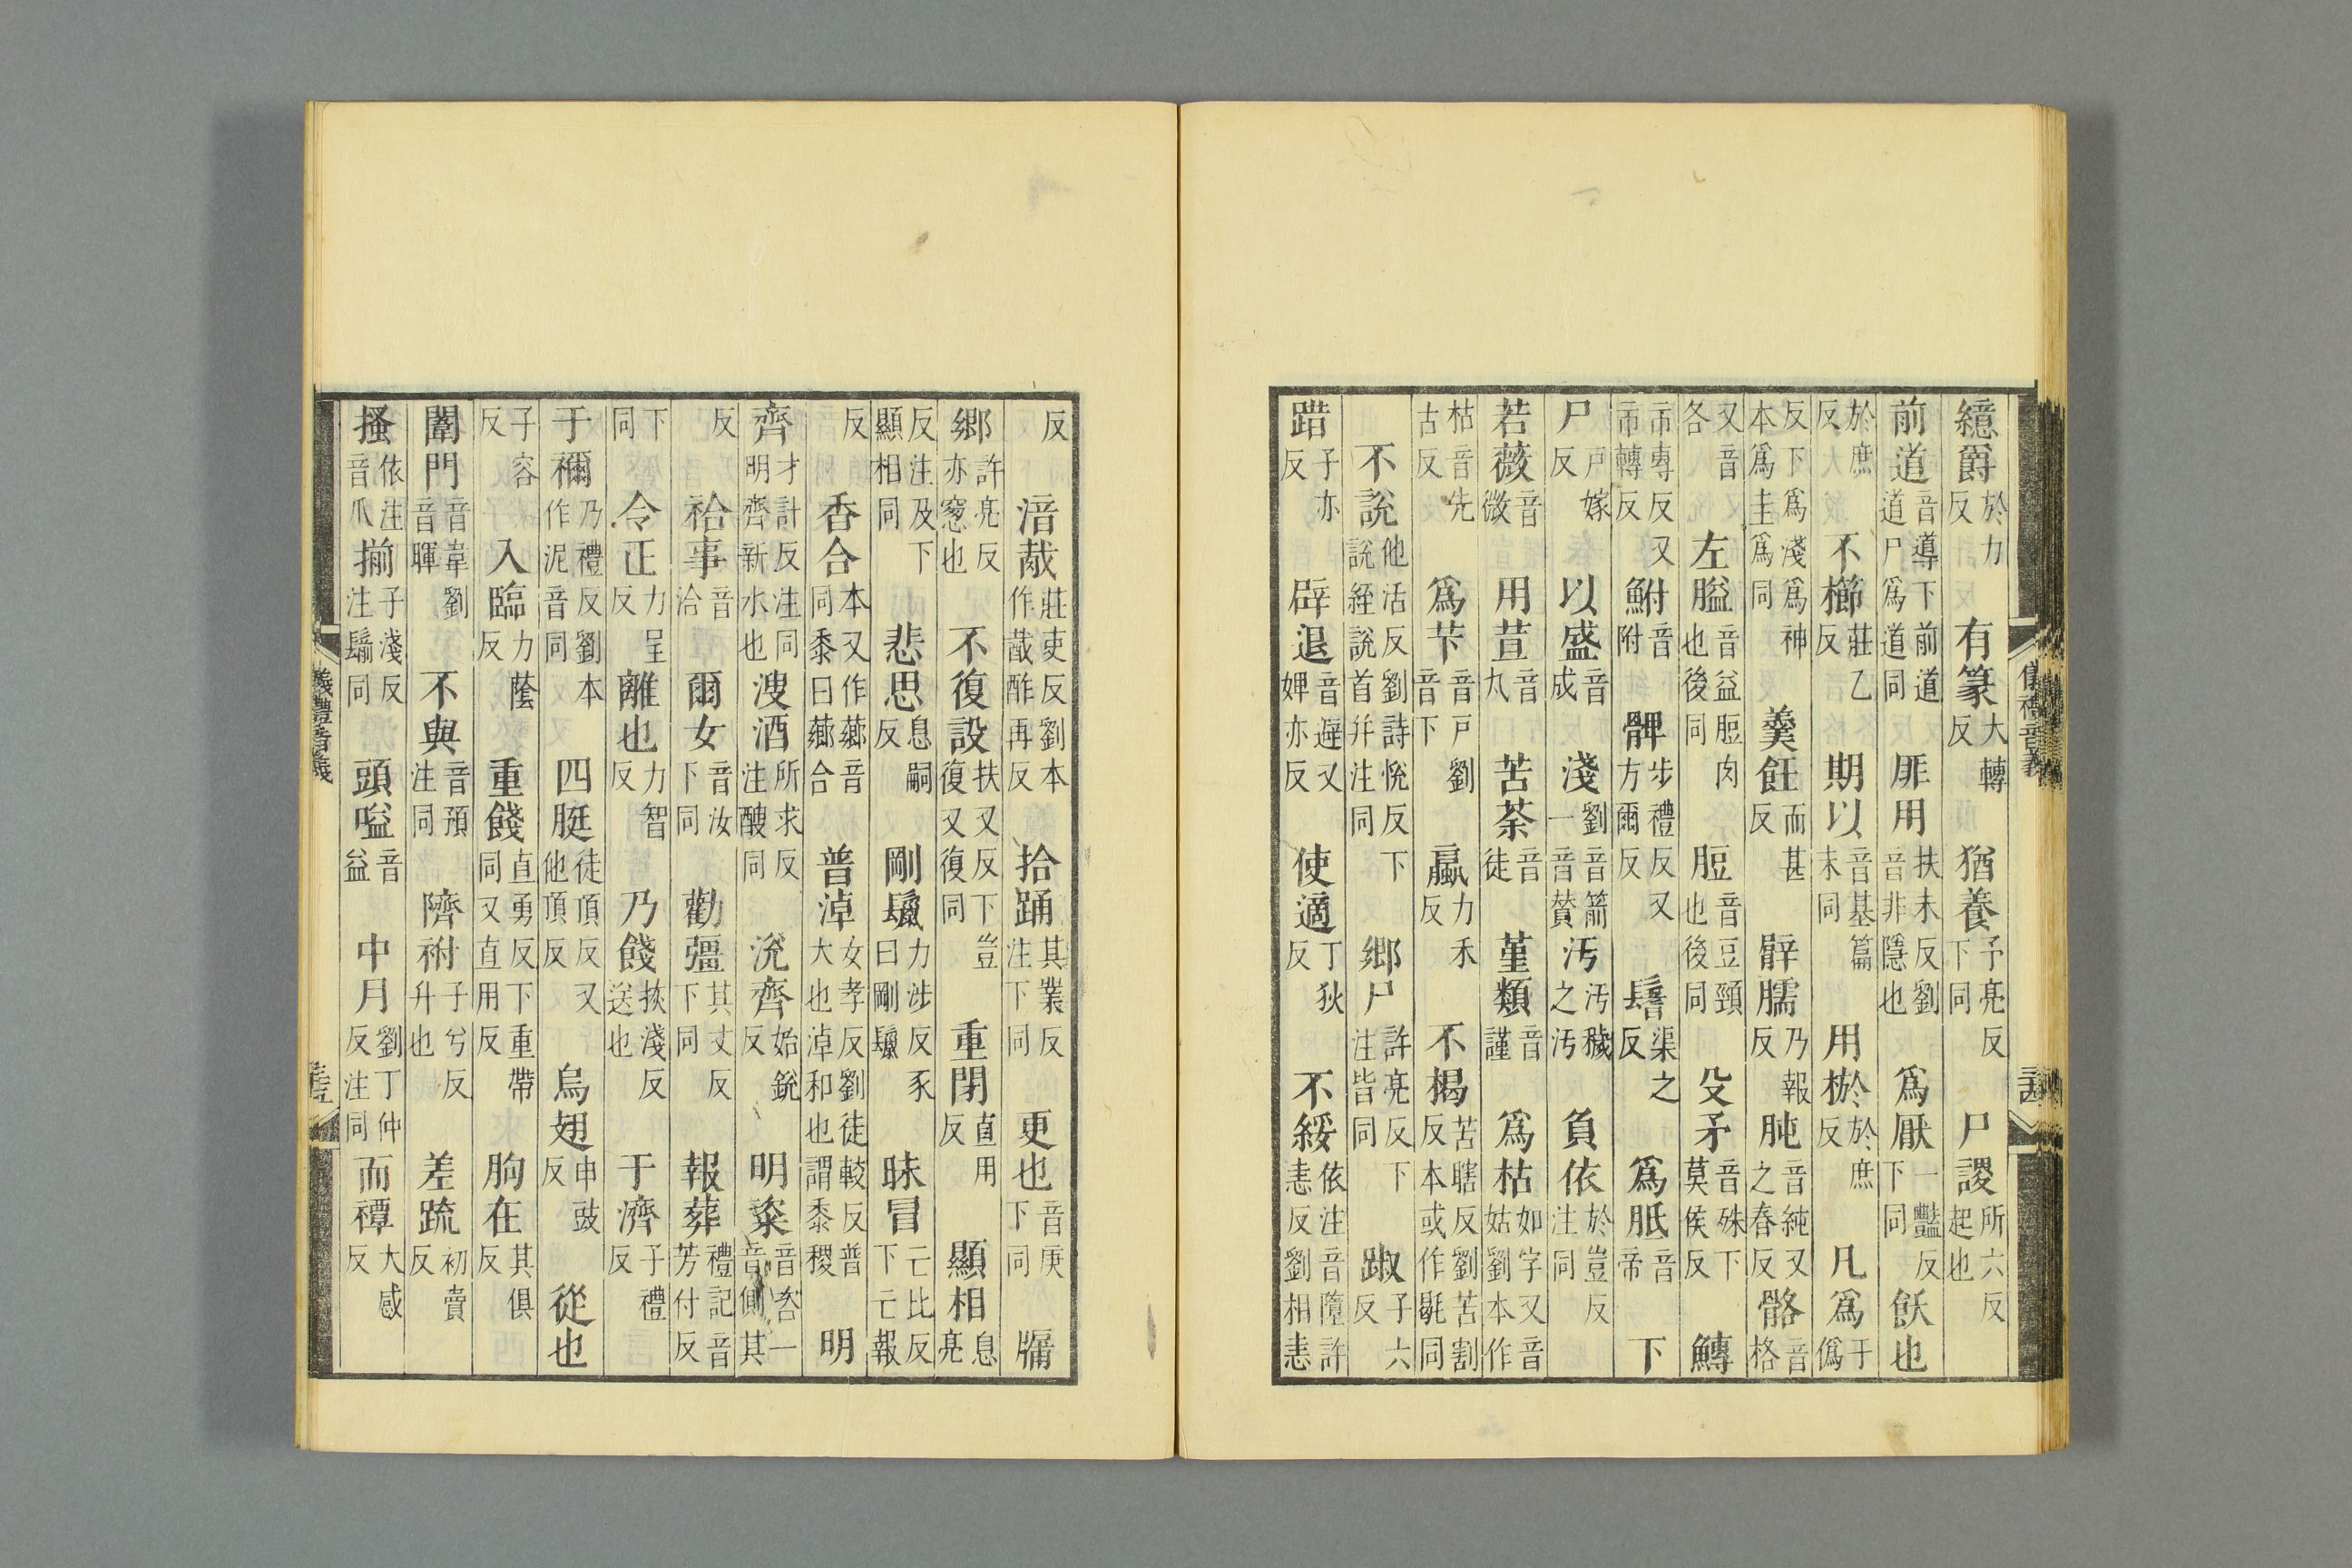 繶爵於力反有篆大轉反猶養予亮反下同尸謖所六反起也
前道音導下前道道尸爲道同厞用扶未反劉音非隱也爲厭一豔反下同飫也
於庶反不櫛莊乙反期以音基篇末同用棜於庶反凡爲于僞
反下爲淺爲神本爲圭爲同羹飪而甚反臂臑乃報反肫音純又之春反骼音格
又音各左膉音益脰肉也後同脰音豆頸也後同殳矛音殊下莫侯反鱄
市專反又市轉反鮒音附髀步禮反又方爾反鬐渠之反爲胝音帝下
尸戸嫁反以盛音成淺劉音箭一音贊汚汚穢之汚負依於豈反注同
若薇音微用荁音丸苦荼音徒堇類音謹爲枯如字又音姑劉本作
枯音先古反爲芐音戸劉音下蠃力禾反不楬苦瞎反劉苦割反本或作毼同
不說他活反劉詩悅反下說經說首幷注同鄉尸許亮反下注皆同踧子六反
踖子亦反辟退音避又婢亦反使適丁狄反不綏依注音墮許恚反劉相恚
反湆胾莊吏反劉本作酨酢再反拾踊其業反注下同更也音庚下同牖
鄉許亮反亦窓也不復設扶又反下豈復又復同重閉直用反顯相息亮
反注及下顯相同悲思息嗣反剛鬛力涉反豕曰剛鬛昧冒亡比反下亡報
反香合本又作薌音同黍曰薌合普淖女孝反劉徒較反普大也淖和也謂黍稷明
齊才計反注同明齊新水也溲酒所求反注醙同涗齊始銳反明粢音咨一音側其
反祫事音洽爾女音汝下同勸彊其丈反下同報葬禮記音芳付反
下同令正力呈反離也力智反乃餞扶淺反送也于濟子禮反
于禰乃禮反劉本作泥音同四脡徒頂反又他頂反烏翅申豉反從也
子容反入臨力蔭反重餞直勇反下重帶同又直用反朐在其俱反
闈門音韋劉音暉不與音預注同隮祔子兮反升也差䟽初賣反
搔依注音爪揃子淺反注鬋同頭嗌音益中月劉丁仲反注同而禫大感反